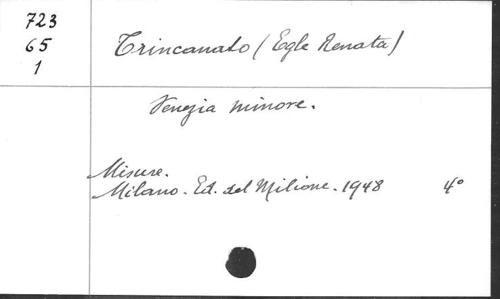 723
65
1
Trincanato (Egle Renata)
Venezia minore.
Misure.
Milano. Ed. del Milione. 1948 4°